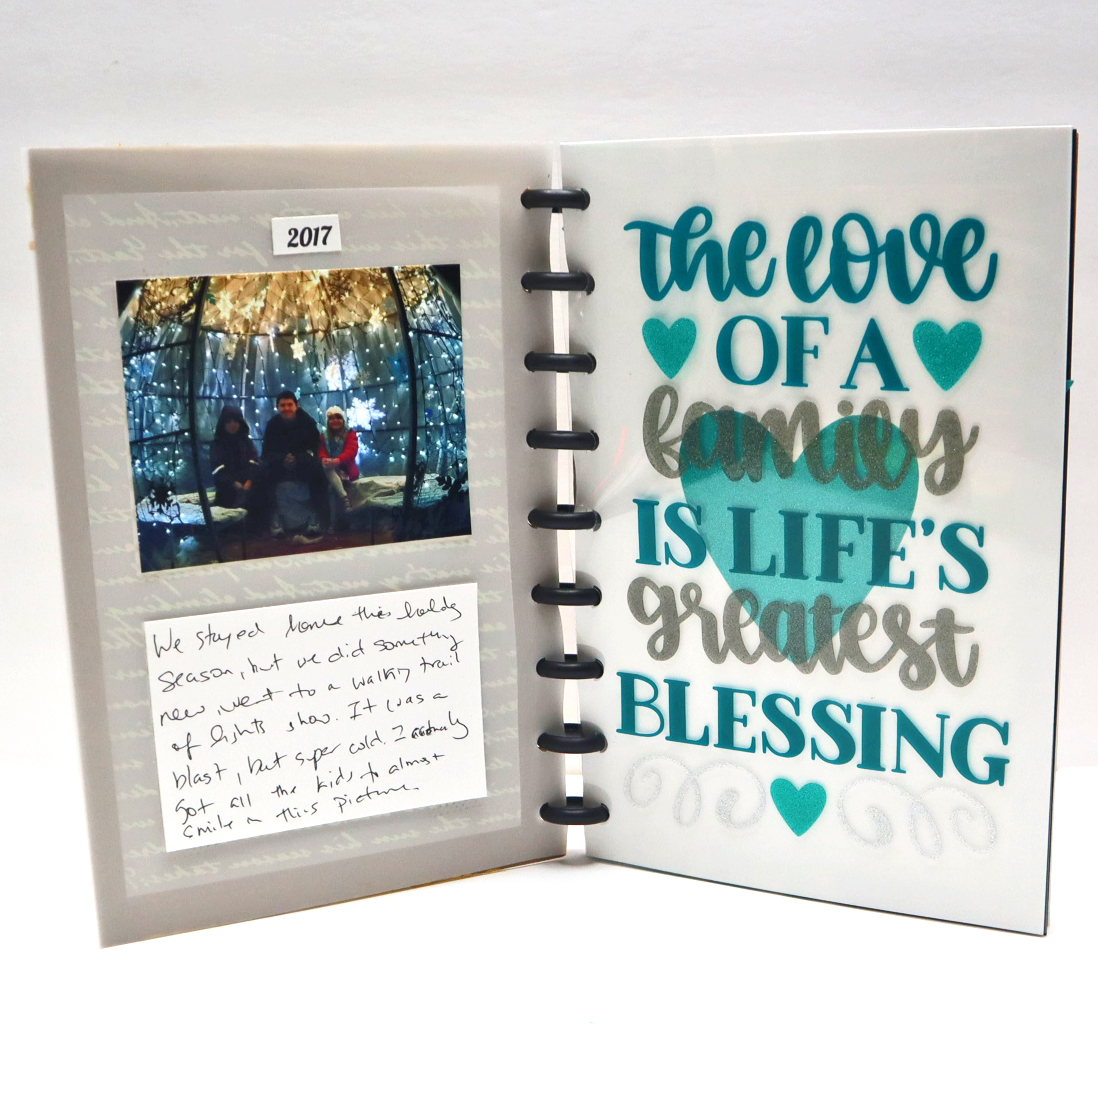 2017
We stayed home this holidy
season, but we did something
new, went to a walking trail
of lights show. It was a
blast, but super cold. I actually
got all the kids to almost
smile in this picture.
the love
OF A
family
IS LIFE'S
greatest
BLESSING